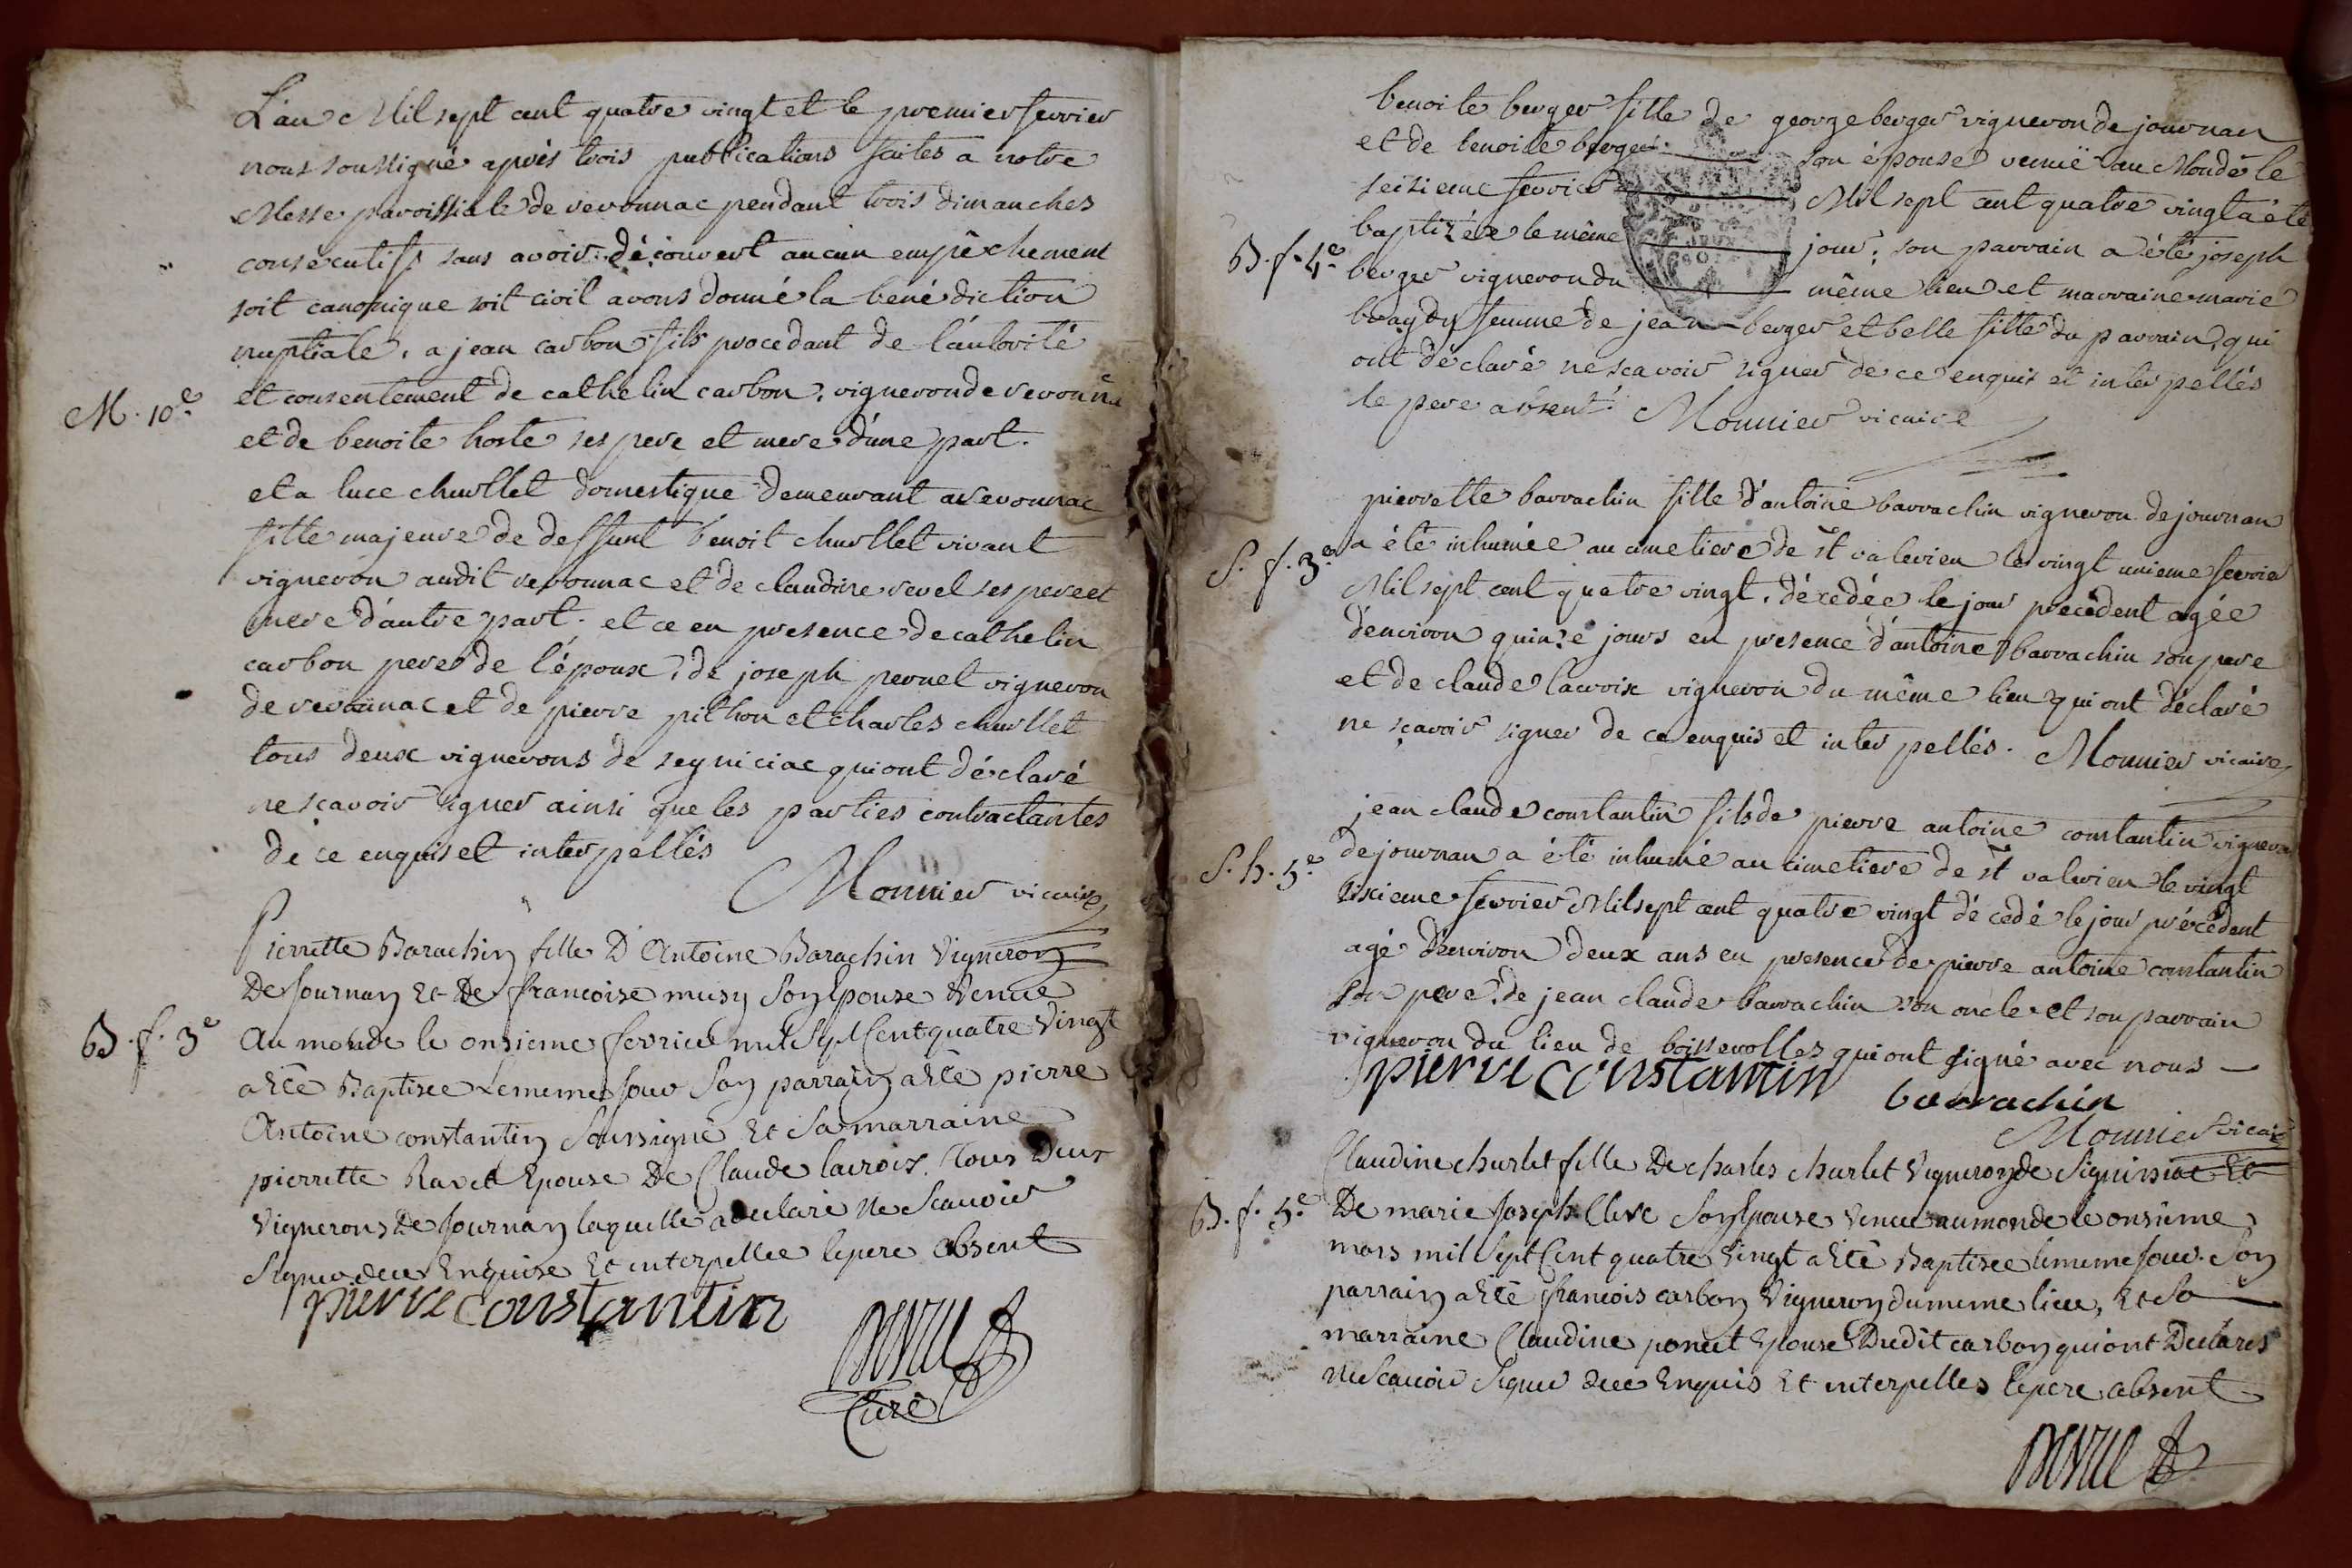 L'an Mil sept cent quatre vingt et le premier fevrier
nous soussigné aprés trois publications faites a notre
Messe paroissiale de revonnac pendant trois dimanches
consecutifs sans avoir découvert aucun empêchement
soit canonique soit civil avons donné la bénédiction
nuptiale, a jean carbon fils procedant de l'autorité
M. 10.e
et consentement de cathelin carbon, vigneron de revonna
et de benoite hoste ses pere et mere d'une part.
et a luce churllet domestique demeurant a revonnac
fille majeure de deffunt benoit churllet vivant
vigneron audit revonnac et de claudine revel ses pere et
mere d'autre part. et ce en presence de cathelin
carbon pere de l'époux, de joseph pernet vigneron
de revonnac et de pierre pithon et charles churllet
tous deux vignerons de seyniciac qui ont déclaré
ne sçavoir signer ainsi que les parties contractantes
de ce enquis et interpellés
Monnier vicaire
Pierrette Barachin fille D'Antoine Barachin Vigneron
De Journan Et De francoise musy Son Epouse Venue
B. f. 3e
Au monde le onsieme fevrier mil Sept Cent quatre Vingt
a Eté Baptisee Le meme Jour Son parrain a Eté pierre
Antoine constantin Soussigné Et Sa marraine
pierrette Ravet Epouse De Claude lacroix. Tous Deux
Vignerons De Journan laquelle a declaré Ne Scauoir
Signer de ce Enquise Et interpellee le pere absent
pierre constantin
Curé
benoite berger fille de george berger vigneron de journan
et de benoite berger son épouse venuë au Monde le
seizieme fevrier Mil sept cent quatre vingt a été
baptizée le même jour; son parrain a été joseph
B. f. 4.e
berger vigneron du même lieu et marraine marie
femme de jean berger et belle fille du parrain, qui
ont déclaré ne scavoir signer de ce enquis et interpellés
le pere absent. Monnier vicaire
pierrette barrachin fille d'antoine barrachin vigneron de journan
S. f. 3.e
a été inhumée au cimetiere de st valerien le vingt unieme fevrier
Mil sept cent quatre vingt, décédée le jour precedent agée
d'environ quinze jours en presence d'antoine barrachin son pere
et de claude lacroix vigneron du même lieu qui ont déclaré
ne sçavoir signer de ce enquis et interpellés. Monnier vicaire
jean claude constantin fils de pierre antoine constantin vigneron
S. h. 5.e
de journan a été inhumé au cimetiere de st valerien le vingt
sixieme fevrier Mil sept cent quatre vingt décedé le jour précédent
agé d'environ deux ans en presence de pierre antoine constantin
son pere, de jean claude barrachin son oncle et son parrain
vigneron du lieu de boisserolles qui ont signé avec nous
pierre constantin
barrachin
Monnier vicaire
Claudine churlet fille De charles churlet Vigneron de Signissiac Et
B. f. 5.e
De marie Joseph Clerc Son Epouse Venue au monde le onsieme
mars mil Sept Cent quatre Vingt a Eté Baptisee le meme Jour. Son
parrain a Eté francois carbon Vigneron du meme lieu, Et Sa
marraine Claudine poncet Epouse Dudit carbon qui ont Declarés
Ne Scauoir Signer de ce Enquis Et interpelles le pere absent